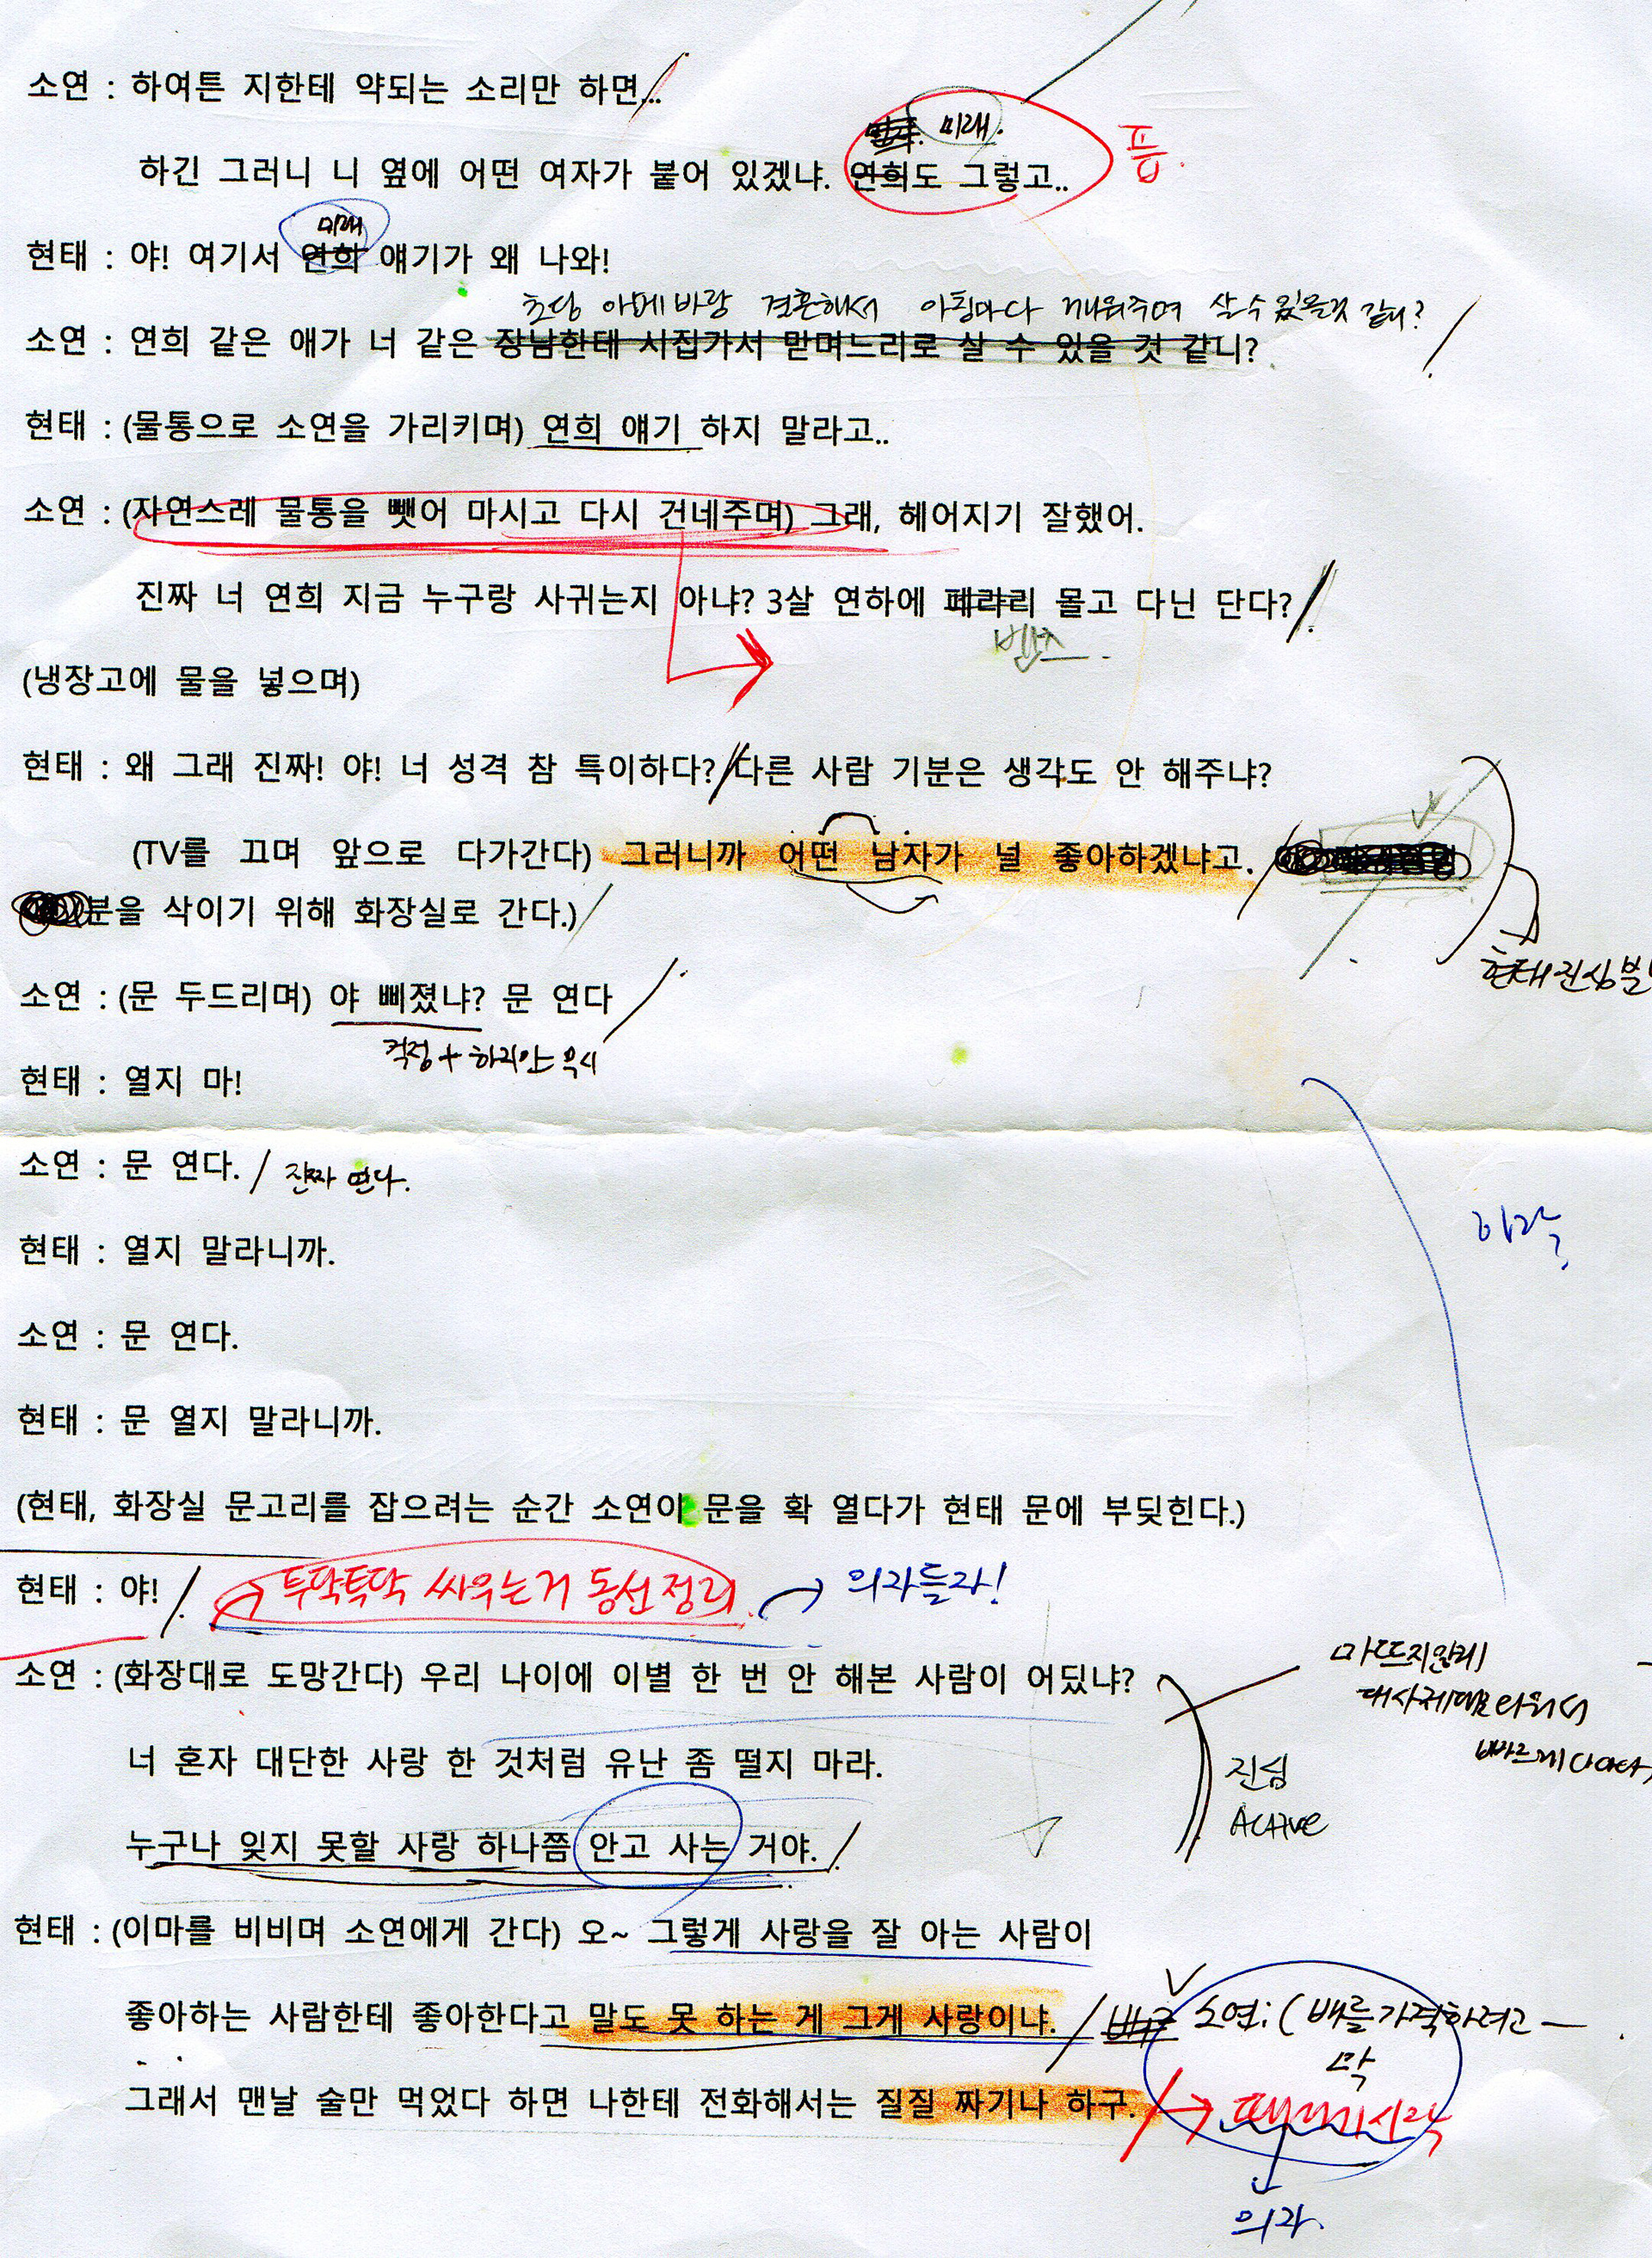 소연 : 하여튼 지한테 약되는 소리만 하면...
미래.
하긴 그러니 니 옆에 어떤 여자가 붙어 있겠냐. 연희도 그렇고..
픕.
미래
현태 : 야! 여기서 연희 얘기가 왜 나와!
초딩 아메바랑 결혼해서 아침마다 깨워주며 살 수 있을것 같니?
소연 : 연희 같은 애가 너 같은 장남한테 시집가서 맏며느리로 살 수 있을 것 같니?
현태 : (물통으로 소연을 가리키며) 연희 얘기 하지 말라고..
소연 : (자연스레 물통을 뺏어 마시고 다시 건네주며) 그래, 헤어지기 잘했어.
진짜 너 연희 지금 누구랑 사귀는지 아냐? 3살 연하에 페라리 몰고 다닌 단다?
벤츠
(냉장고에 물을 넣으며)
현태 : 왜 그래 진짜! 야! 너 성격 참 특이하다? 다른 사람 기분은 생각도 안 해주냐?
(TV를 끄며 앞으로 다가간다) 그러니까 어떤 남자가 널 좋아하겠냐고.
분을 삭이기 위해 화장실로 간다.)
현태 진심
소연 : (문 두드리며) 야 삐졌냐? 문 연다
걱정 + 하지만 무시
현태 : 열지 마!
소연 : 문 연다. / 진짜 연다.
현태 : 열지 말라니까.
소연 : 문 연다.
현태 : 문 열지 말라니까.
(현태, 화장실 문고리를 잡으려는 순간 소연이 문을 확 열다가 현태 문에 부딪힌다.)
현태 : 야!
투닥투닥 싸우는거 동선정리
의자들자!
소연 : (화장대로 도망간다) 우리 나이에 이별 한 번 안 해본 사람이 어딨냐?
너 혼자 대단한 사랑 한 것처럼 유난 좀 떨지 마라.
진심
Active
누구나 잊지 못할 사랑 하나쯤 안고 사는 거야.
현태 : (이마를 비비며 소연에게 간다) 오~ 그렇게 사랑을 잘 아는 사람이
좋아하는 사람한테 좋아한다고 말도 못 하는 게 그게 사랑이냐.
소연 : (배를 가격하려고
막
그래서 맨날 술만 먹었다 하면 나한테 전화해서는 질질 짜기나 하구.
때리기시작
의자.